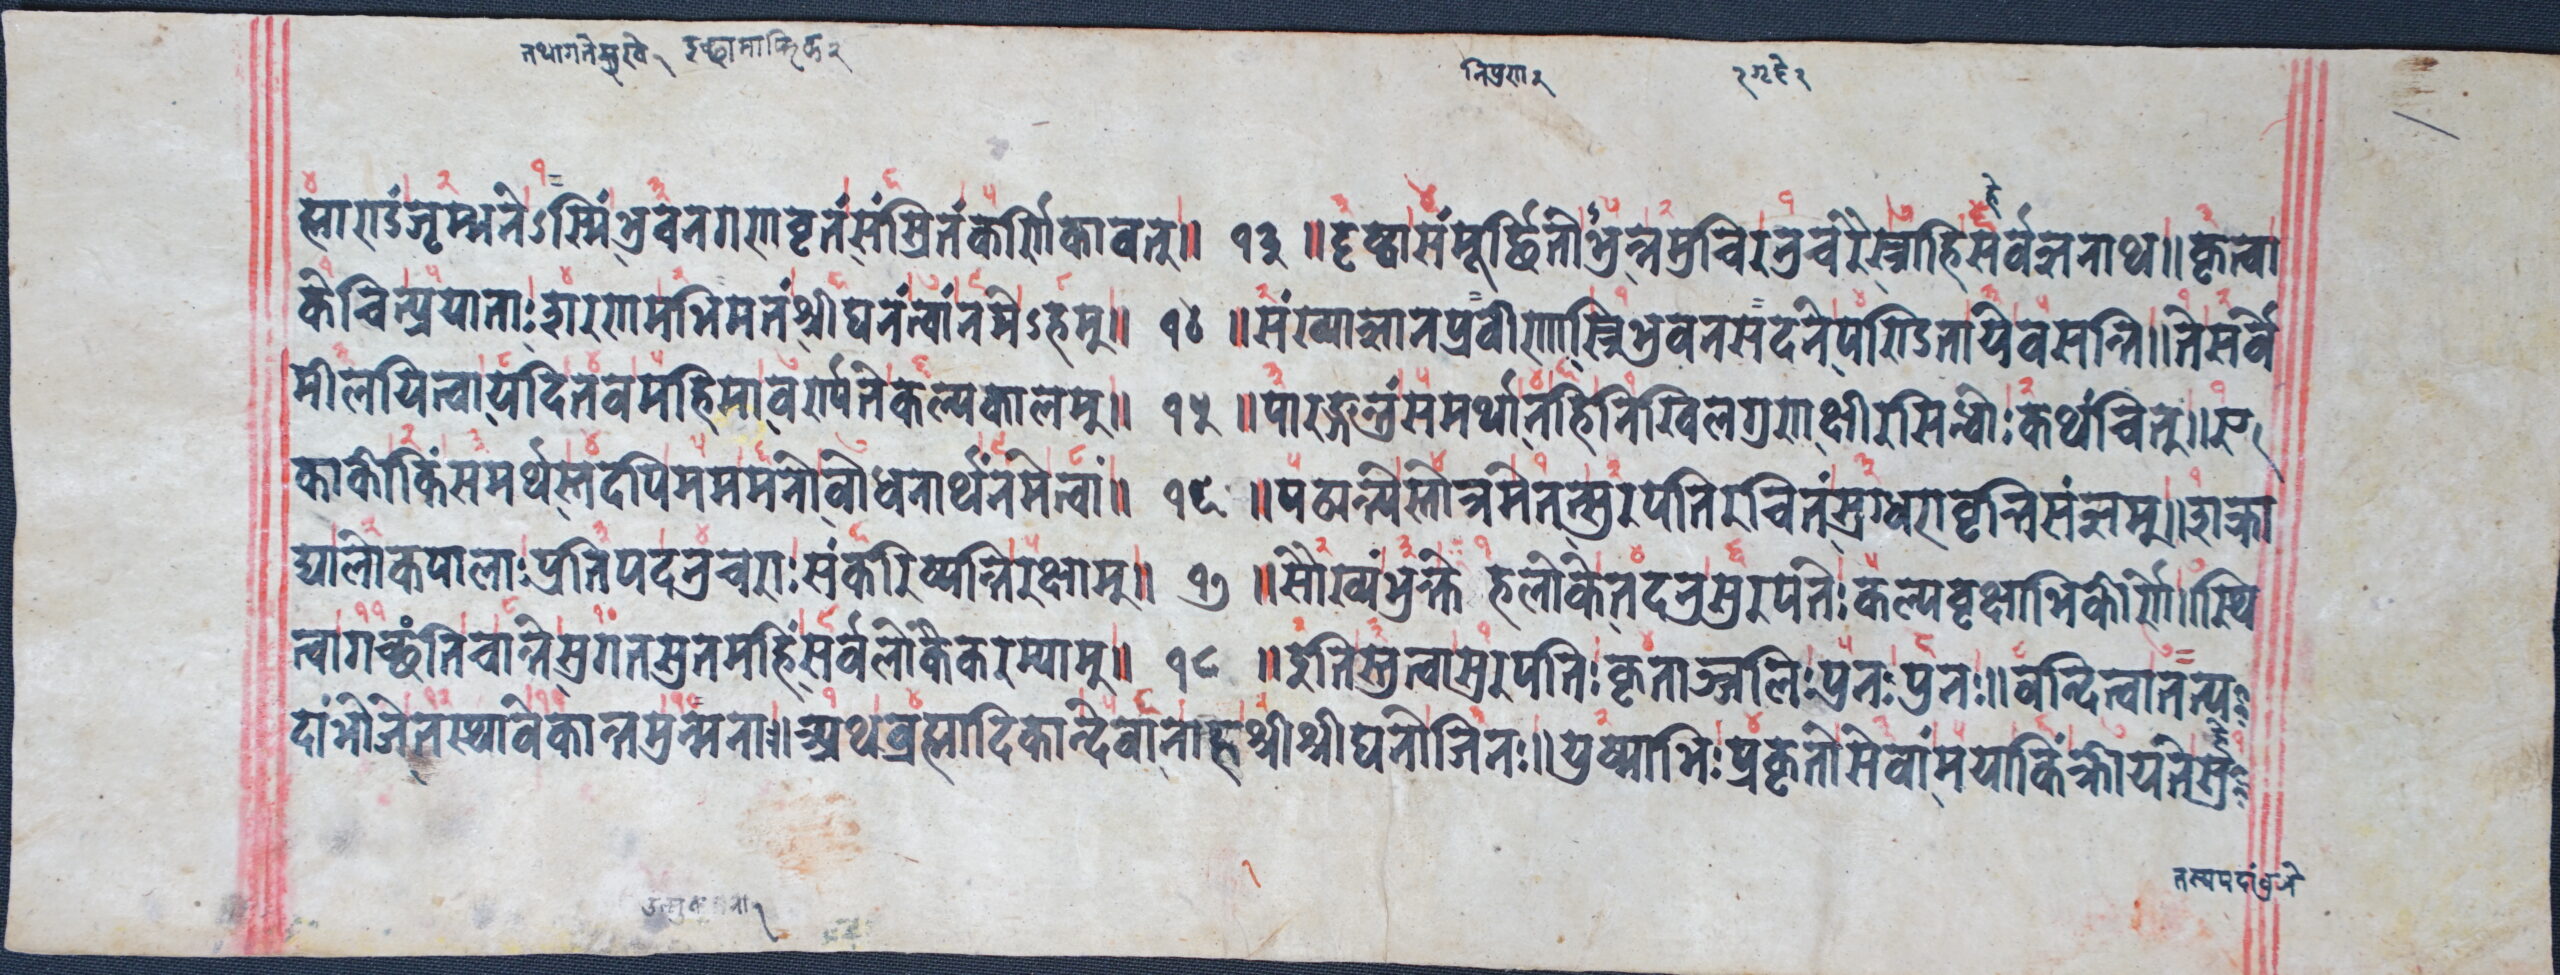 ह्मारण्डं जृम्भतेऽस्मिं भुवनगणवृतं संश्रितं कर्णिकावत्॥ १३ ॥ दृष्ट्वा संमूर्छितो भुन्त्रमुचिरनुचरै स्त्राहि सर्वज्ञनाथ॥ कृत्वा
केचित्प्रयाताः शरणमभिमतं श्रीघनं त्वां नमेऽहम्॥ १४ ॥ संख्याज्ञानप्रवीणास्त्रिभुवनसदने पण्डिता ये वसन्ति॥ ते सर्वे
मीलयित्वा यदि तव महिमा वर्ण्यते कल्पकालम्॥ १५ ॥ पारङ्गन्तुं समर्था नहि निखिलगुणक्षीरसिन्धोः कथंचित्॥ ए
काकी किं समर्थस्तदपि मम मनो बोधनार्थं नमे त्वां॥ १६ ॥ पठ्यन्त्ये स्तोत्रमेतत्सुरपतिरचितं स्रग्धरावृत्तिसंज्ञम्॥ शक्रा
द्या लोकपालाः प्रतिपदनुचराः संकरिष्यन्ति रक्षाम्॥ १७ ॥ सौख्यं भुन्क्ते हलोके तदनु सुरपतेः कल्पवृक्षाभिकीर्णे॥ स्थि
त्वा गच्छंति चान्ते सुगतसुतमहिं सर्वलोकैकरम्याम्॥ १८ ॥ इति स्तुत्वा सुरपतिः कृताञ्जलिः पुनः पुनः॥ वन्दित्वा तत्प
दांभोजे तस्थावेकान्तमुन्मनाः॥ अथ ब्रह्मादिकान्देवानाह श्रीश्रीघनो जिनः॥ युष्माभिः प्रकृतो सेवां मया किं क्रीयते सु